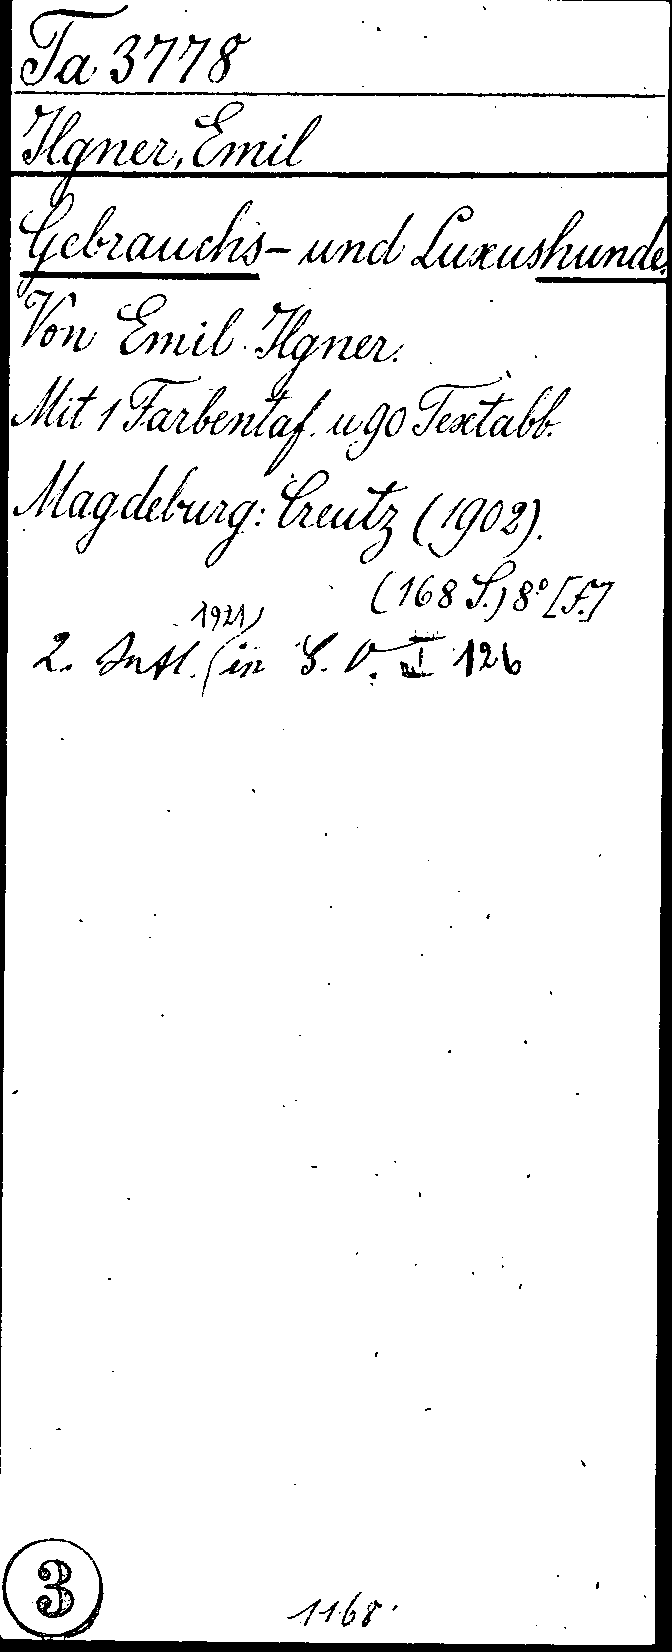 Ta 3778
Ilgner, Emil
Gebrauchs- und Luxushunde.
Von Emil Ilgner.
Mit 1 Farbentaf. u 90 Textabb.
Magdeburg: Creutz (1902).
(168 S.) 8° [F.]
1921)
2. Aufl. (in S. V. II 126
3
1168